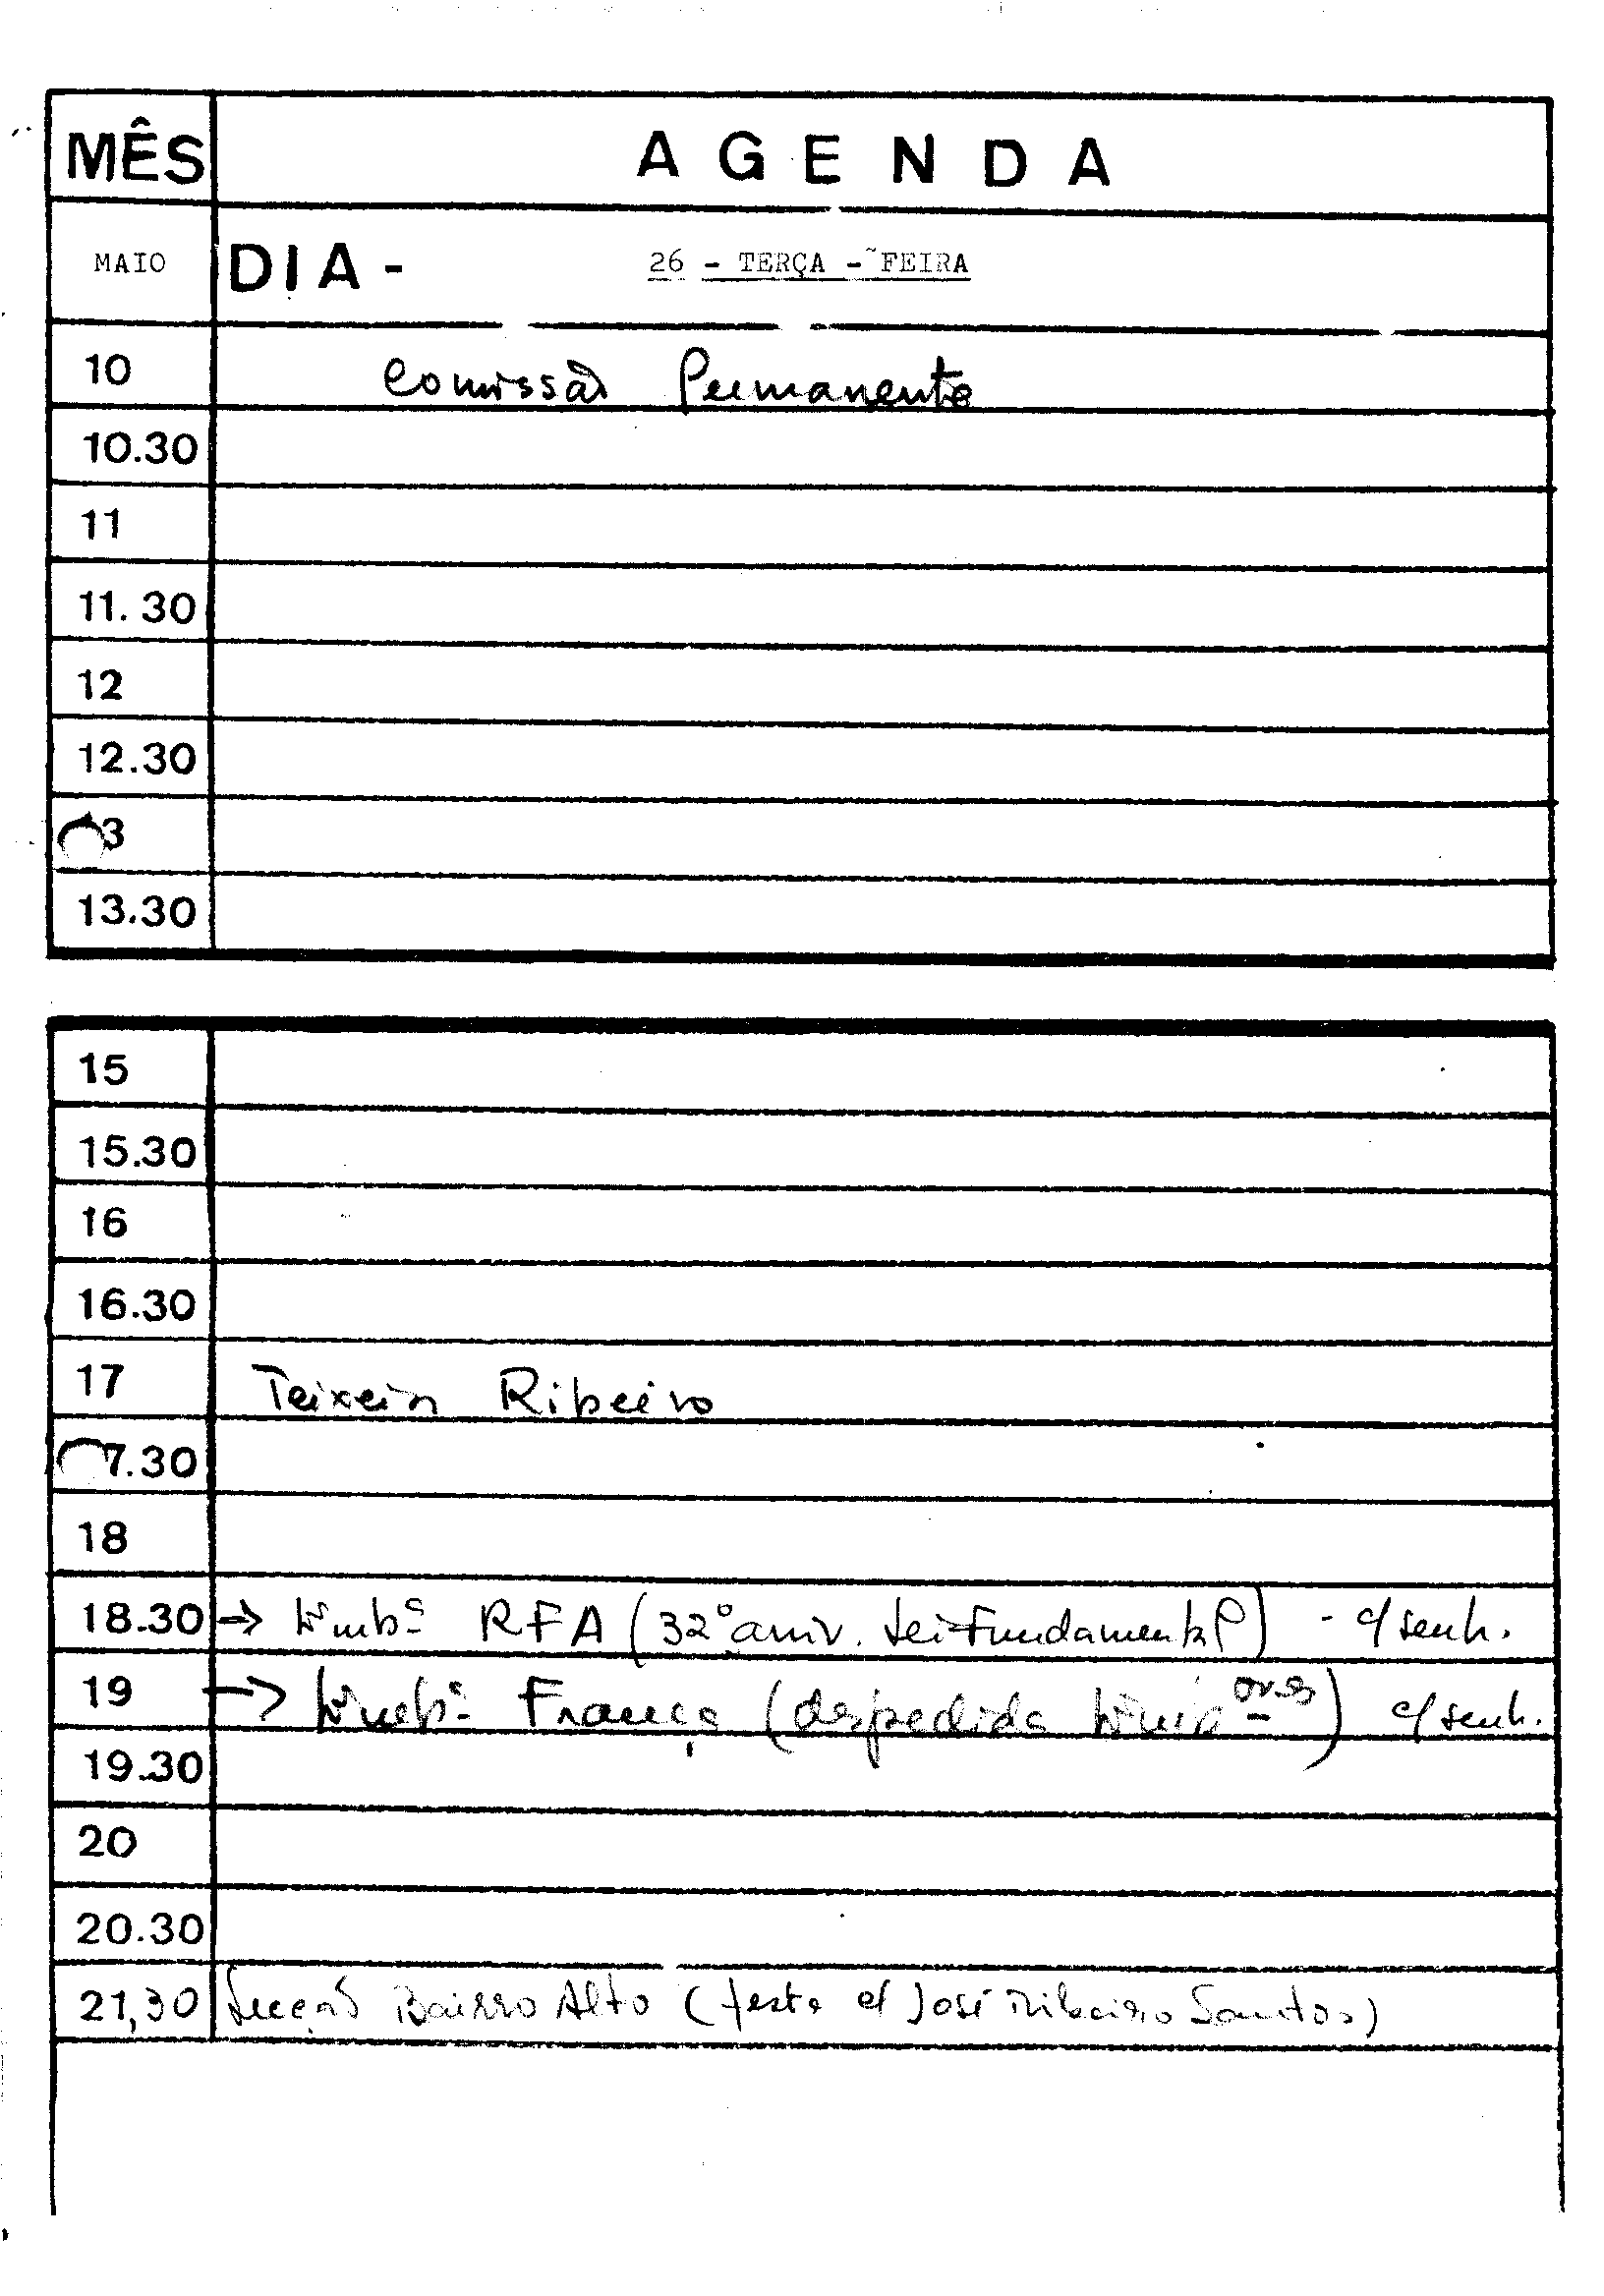 MÊS AGENDA
MAIO DIA - 26 - TERÇA - FEIRA
10 Comissão Permanente
10.30
11
11.30
12
12.30
3
13.30
15
15.30
16
16.30
17 Teixeira Ribeiro
7.30
18
18.30 → Embª RFA (32º aniv. Lei Fundamental) - c/ senh.
19 → Embª França (despedida Embores) c/ senh.
19.30
20
20.30
21,30 Secção Bairro Alto (festa c/ José Ribeiro Santos)